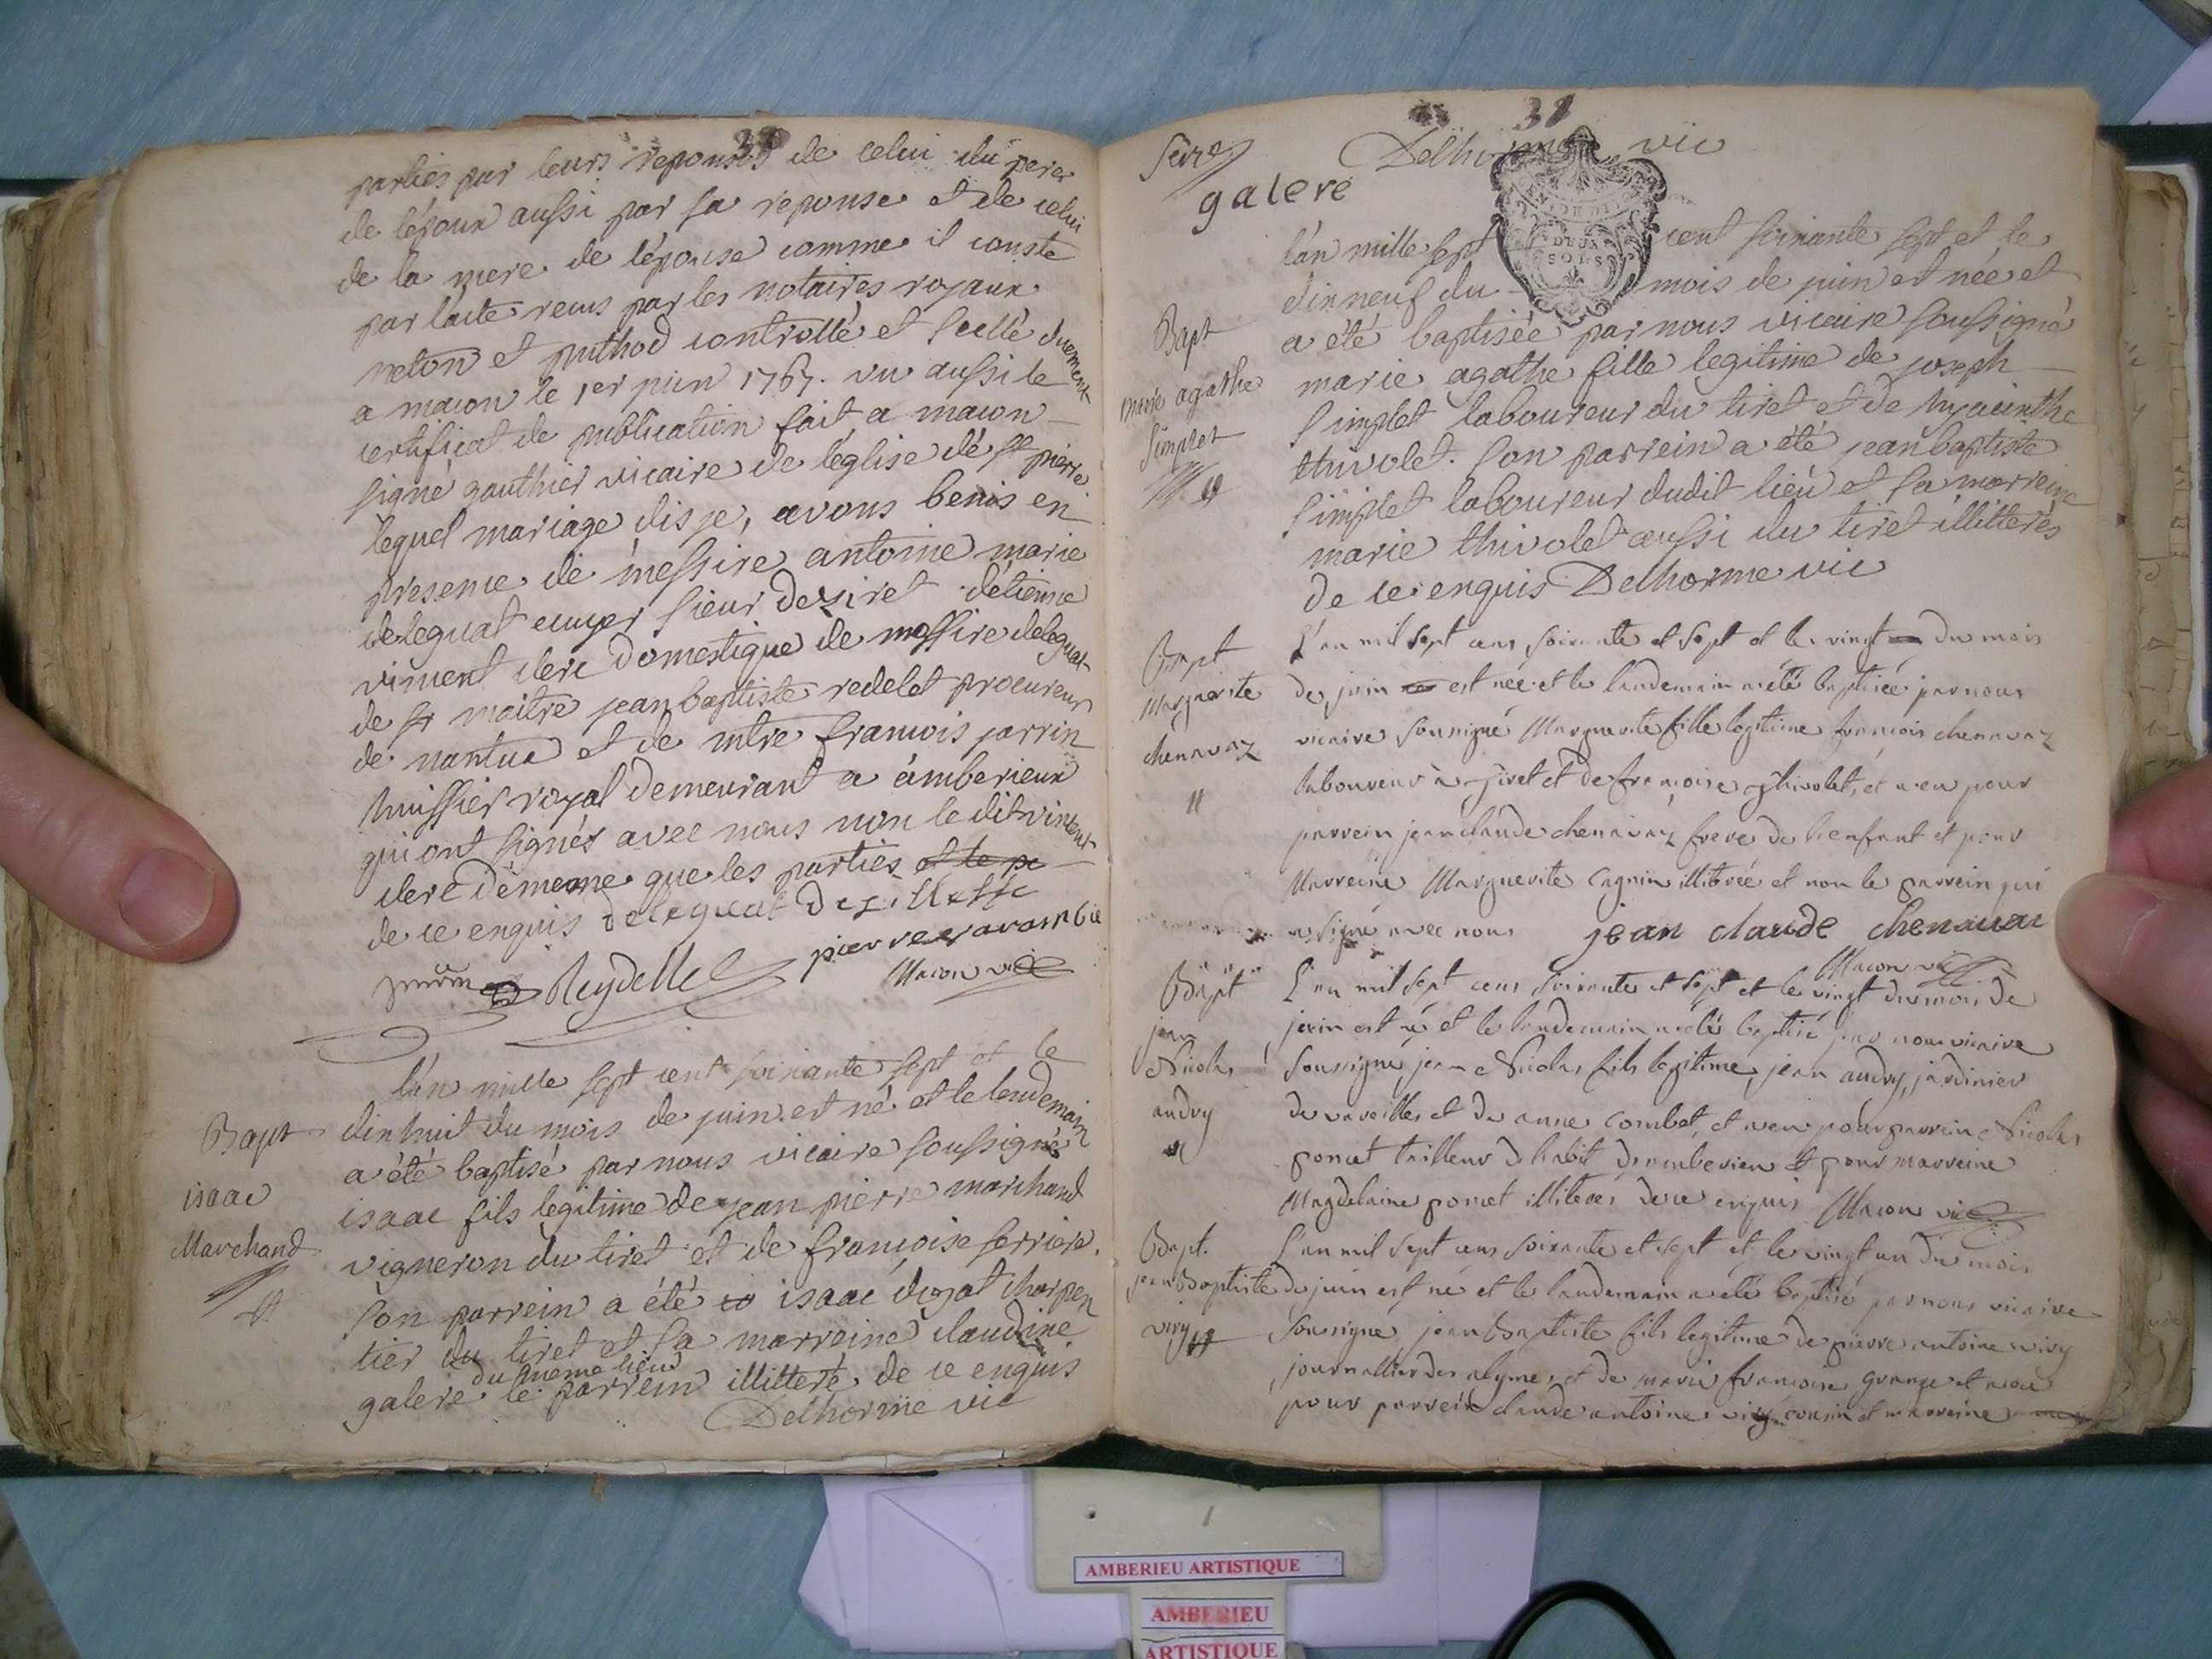 30
parties par leurs reponses de celui du pere
de lépoux aussi par sa reponse et de celui
de la mere de lépouse comme il conste
par lacte recus par les notaires royaux
neton et puthod controllé et scellé duement
a macon le 1er juin 1767. vu aussi le
certificat de publication fait a macon
signé gauthier vicaire de léglise de st pierre
lequel mariage dis je, avons benis en
presence de messire antoine marie
deleguat ecuyer sieur detiret détienne
vincent clerc domestique de messire deleguat
de sr maitre jean baptiste redelet procureur
de nantua et de mtre francois jarrin
huissier royal demeurant a amberieux
qui ont signés avec nous non le dit vincent
clerc dememe que les parties et le pe
de ce enquis deleguat
Reydellet
Macon vic
Bapt
isaac
Marchand
lán mille sept cent soixante sept et le
dix huit du mois de juin est né et le lendemain
a été baptisé par nous vicaire soussigné
isaac fils légitime de jean pierre marchand
vigneron du tiret et de francoise serriere.
son parrein a été isaac dujat charpen
tier du tiret et sa marreine claudine
du meme lieu
galere le parrein illitteré de ce enquis
Delhorme vic
31
Delhorme vic
galere
lán mille sept cent soixante sept et le
dixneuf du mois de juin est née et
Bapt
marie agathe
Simplet
a été baptisée par nous vicaire soussigné
marie agathe fille legitime de joseph
Simplet laboureur du tiret et de hyacinthe
thivolet. son parrein a été jean baptiste
Simplet laboureur dudit lieu et sa marreine
marie thivolet aussi du tiret illitterés
de ce enquis Delhorme vic
Bapt
Marguerite
chenavaz
L'an mil sept cens soixante et sept et le vingt du mois
de juin est née et le landemain a été baptisée par nous
vicaire sousigné Marguerite fille legitime francois chenavaz
laboureur à tiret et de francoise thivolet, et a eu pour
parrein jean claude chenavaz frere de l'enfant et pour
Marreine Marguerite cagnin illiterée et non le parrein qui
a signé avec nous jean claude chenavaz
Macon vic
Bapt
jean
Nicolas
audry
L'an mil sept cens soixante et sept et le vingt du mois de
juin est né et le landemain a eté baptisé par nous vicaire
sousigné jean Nicolas fils legitime, jean audry, jardinier
de vareilles et de anne combet, et a eu pour parrein Nicolas
poncet tailleur d'habit d'amberieu et pour marreine
Magdelaine poncet illiteres de ce enquis Macon vic
Bapt.
jean Baptiste
viry
L'an mil sept cens soixante et sept et le vingt un du mois
de juin est né et le landemain a eté baptisé par nous vicaire
sousigné jean Baptiste fils legitime de pierre antoine viry
journallier des alymes, et de marie francoise grange et a eu
pour parrein claude antoine viry cousin et marreine
AMBERIEU ARTISTIQUE
AMBERIEU
ARTISTIQUE